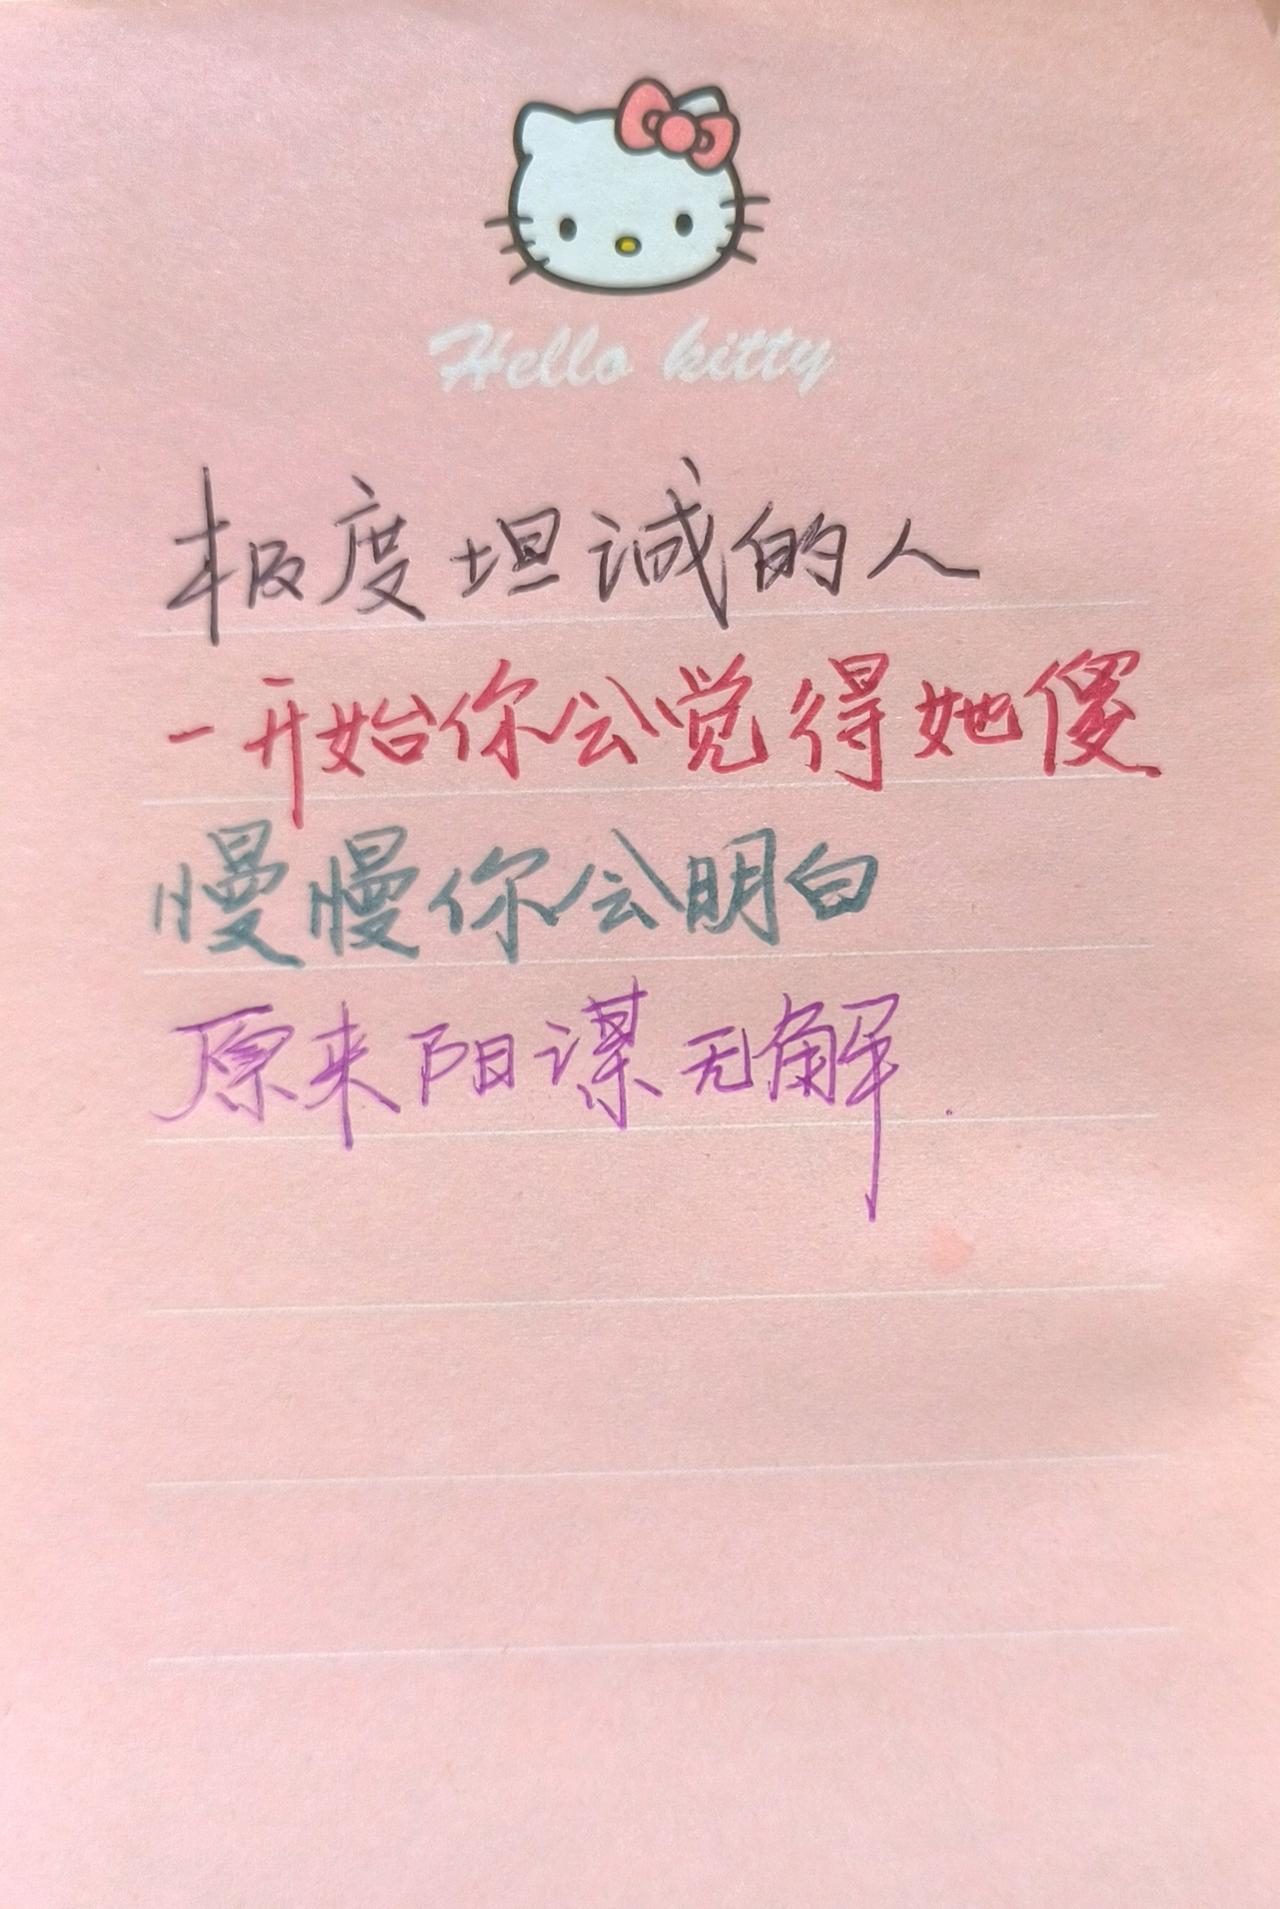 Hello kitty
极度坦诚的人
一开始你会觉得她傻
慢慢你会明白
原来阳谋无解.